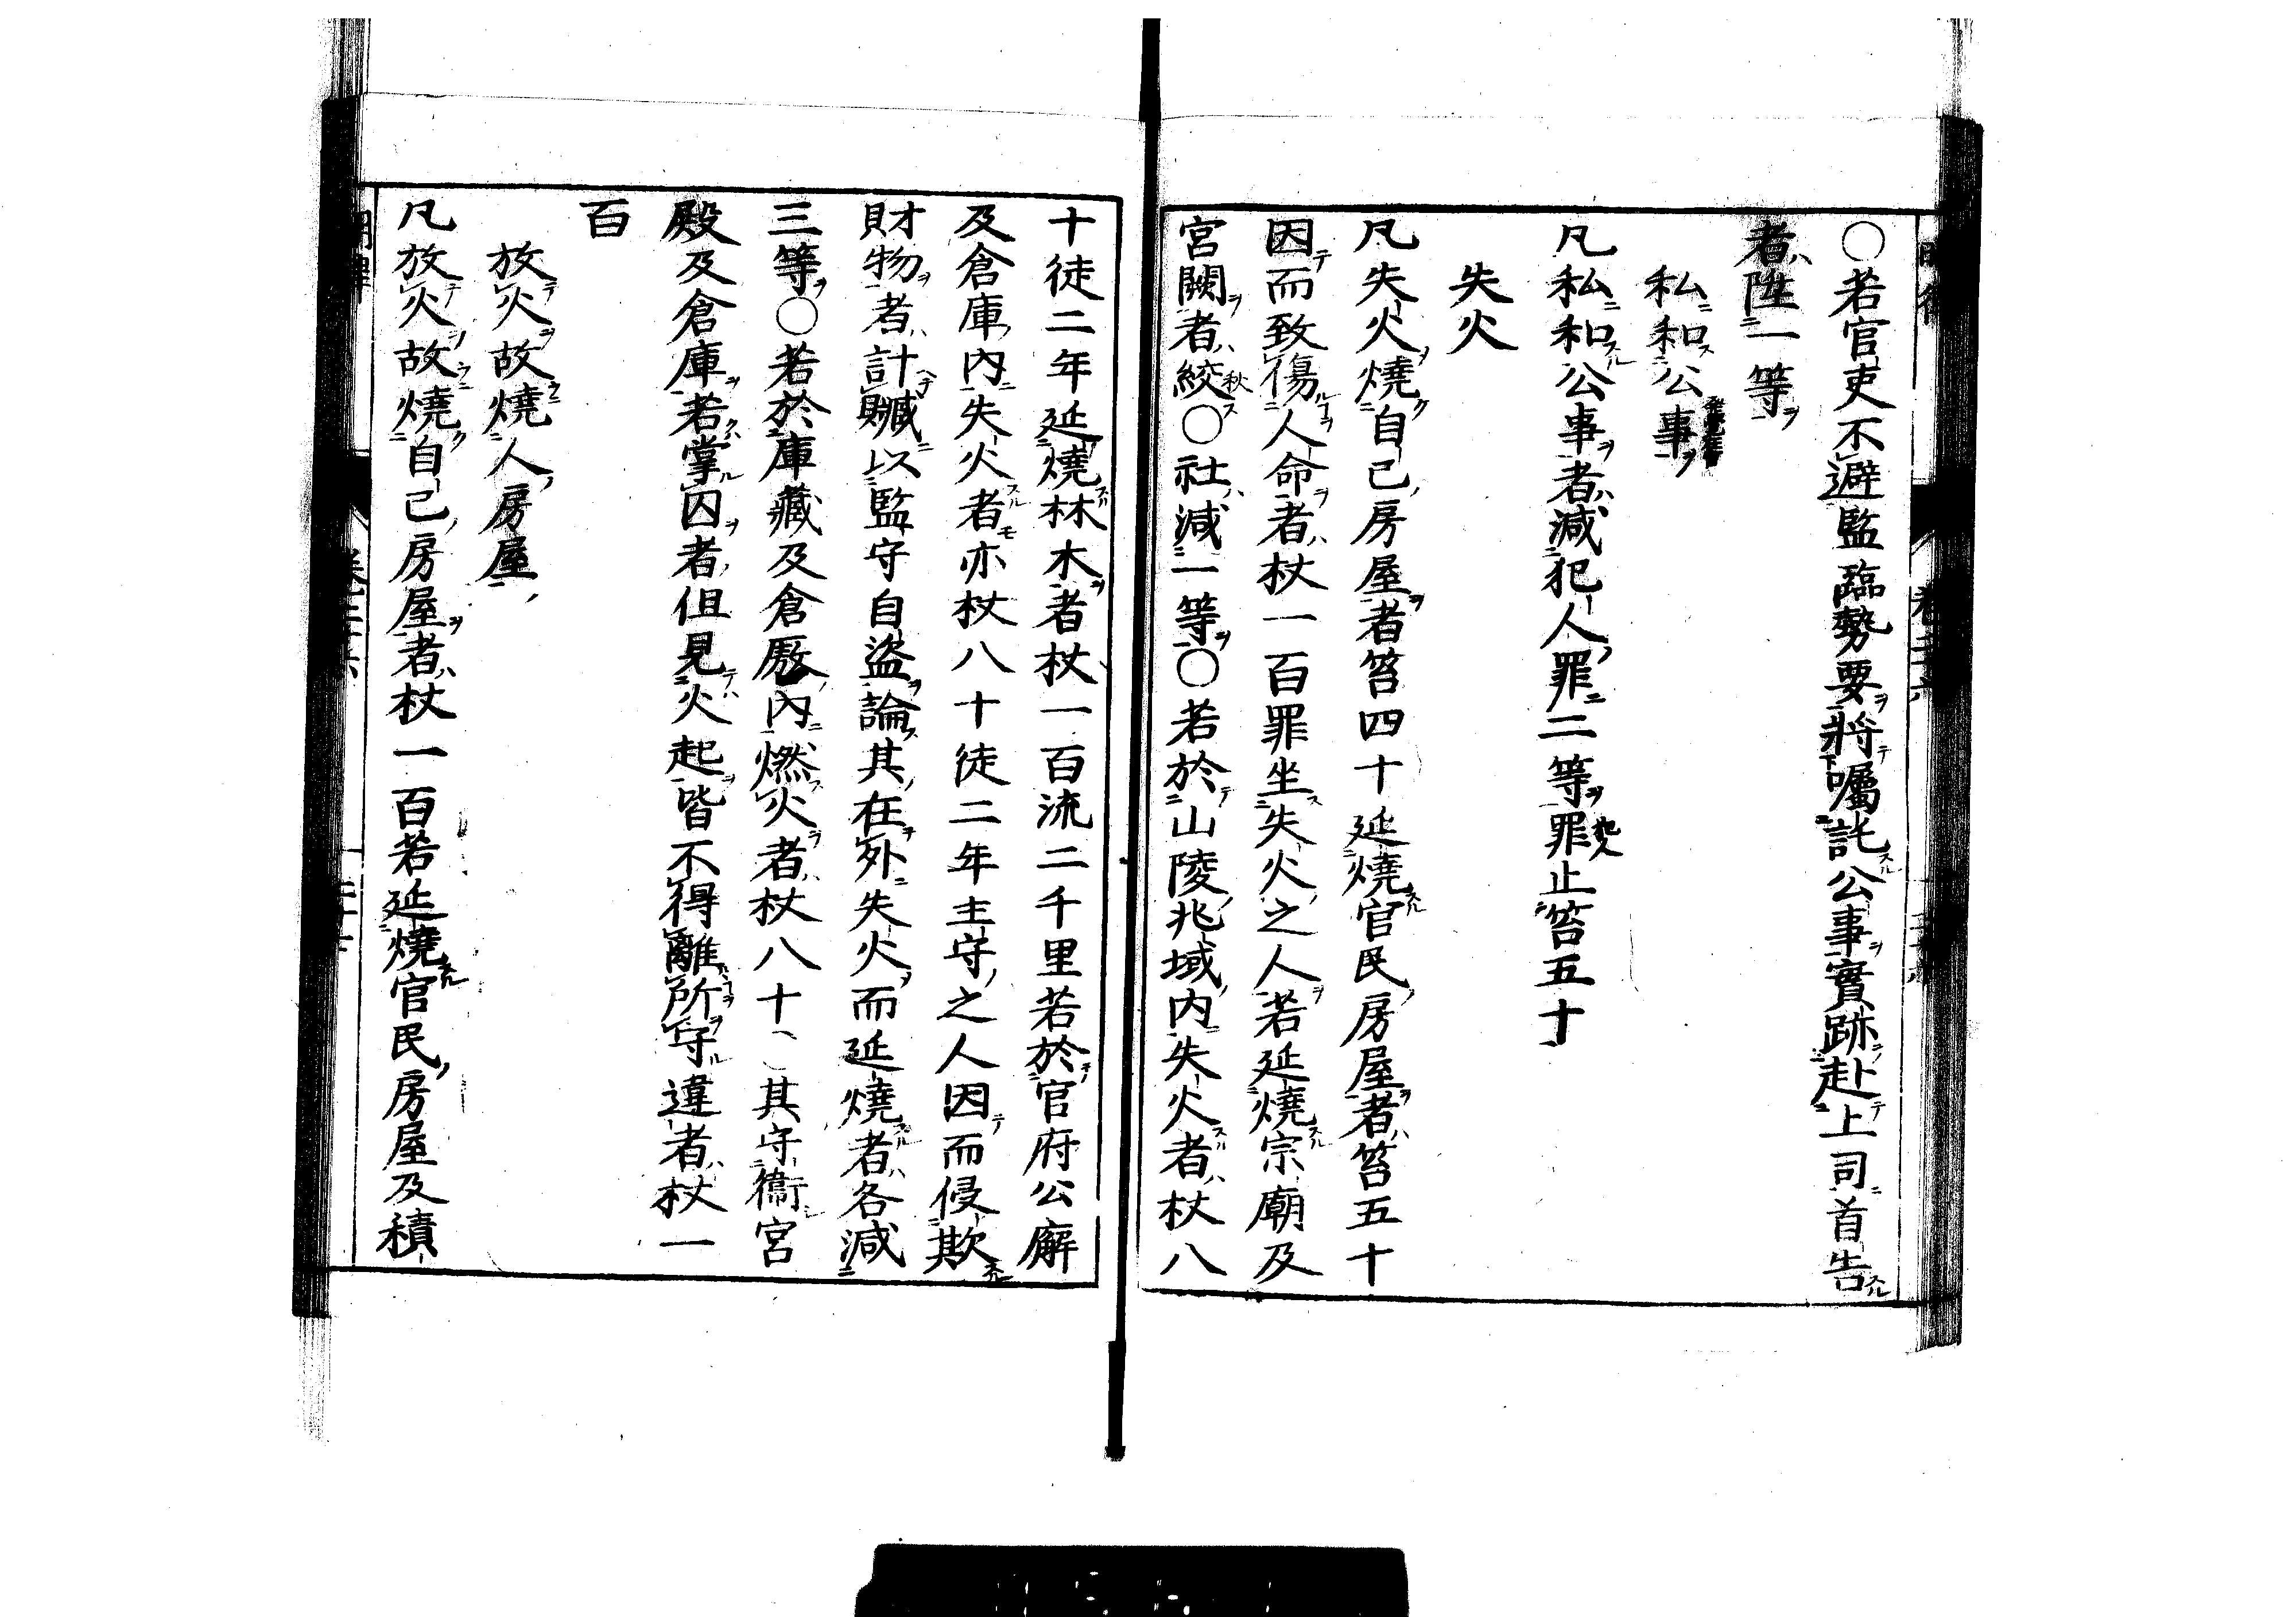 ○若官吏不避監臨勢要將囑託公事實跡赴上司首告
者陞一等
私和公事
凡私和公事者減犯人罪二等罪止笞五十
失火
凡失火燒自己房屋者笞四十延燒官民房屋者笞五十
因而致傷人命者杖一百罪坐失火之人若延燒宗廟及
宮闕者絞○社減一等○若於山陵兆域內失火者杖八
十徒二年延燒林木者杖一百流二千里若於官府公廨
及倉庫內失火者亦杖八十徒二年主守之人因而侵欺
財物者計贓以監守自盜論其在外失火而延燒者各減
三等○若於庫藏及倉廒內燃火者杖八十○其守衞宮
殿及倉庫若掌囚者但見火起皆不得離所守違者杖一
百
放火故燒人房屋
凡放火故燒自己房屋者杖一百若延燒官民房屋及積